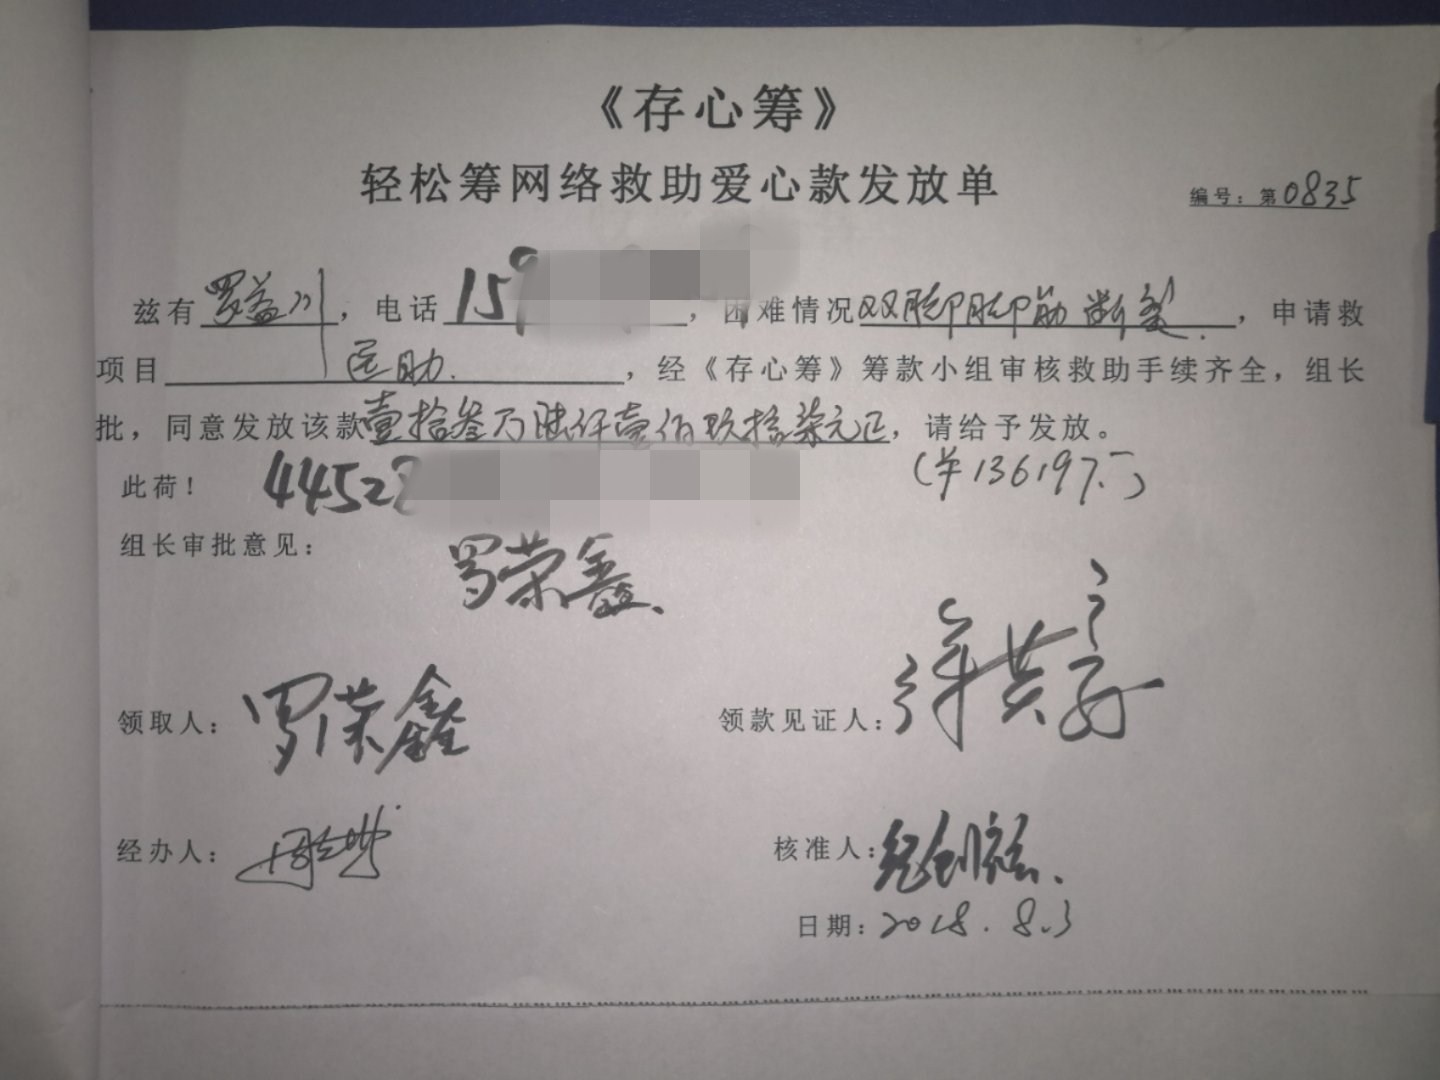 《存心筹》
轻松筹网络救助爱心款发放单
编号：第0835
兹有罗益川，电话159，困难情况双脚脚筋断裂，申请救
项目医助.，经《存心筹》筹款小组审核救助手续齐全，组长
批，同意发放该款壹拾叁万陆仟壹佰玖拾柒元正，请给予发放。
此荷！ 44522 (￥136197.)
组长审批意见：
罗荣鑫
领取人：罗荣鑫 领款见证人：
经办人： 核准人：
日期：2018.8.3